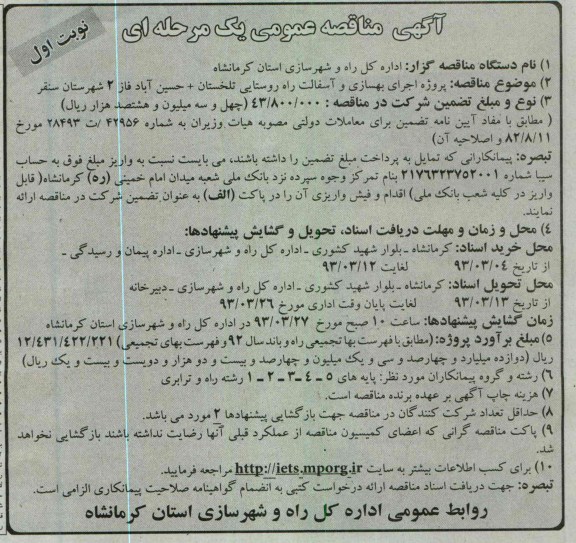 آگهی مناقصه عمومی یک مرحله ای
نوبت اول
۱) نام دستگاه مناقصه گزار: اداره کل راه و شهرسازی استان کرمانشاه
۲) موضوع مناقصه: پروژه اجرای بهسازی و آسفالت راه روستایی تلخستان + حسین آباد فاز ۲ شهرستان سنقر
۳) نوع و مبلغ تضمین شرکت در مناقصه : ۴۳/۸۰۰/۰۰۰ (چهل و سه میلیون و هشتصد هزار ریال)
( مطابق با مفاد آیین نامه تضمین برای معاملات دولتی مصوبه هیات وزیران به شماره ۴۲۹۵۶ /ت ۲۸۴۹۳ مورخ
۸۲/۸/۱۱ و اصلاحیه آن)
تبصره: پیمانکارانی که تمایل به پرداخت مبلغ تضمین را داشته باشند، می بایست نسبت به واریز مبلغ فوق به حساب
سیبا شماره ۲۱۷۶۳۲۳۷۵۲۰۰۱ بنام تمرکز وجوه سپرده نزد بانک ملی شعبه میدان امام خمینی (ره) کرمانشاه( قابل
واریز در کلیه شعب بانک ملی) اقدام و فیش واریزی آن را در پاکت (الف) به عنوان تضمین شرکت در مناقصه ارائه
نمایند.
۴) محل و زمان و مهلت دریافت اسناد، تحویل و گشایش پیشنهادها:
محل خرید اسناد: کرمانشاه ـ بلوار شهید کشوری ـ اداره کل راه و شهرسازی ـ اداره پیمان و رسیدگی ـ
از تاریخ ۹۳/۰۳/۰۴ لغایت ۹۳/۰۳/۱۲
محل تحویل اسناد: کرمانشاه ـ بلوار شهید کشوری ـ اداره کل راه و شهرسازی ـ دبیرخانه
از تاریخ ۹۳/۰۳/۱۳ لغایت پایان وقت اداری مورخ ۹۳/۰۳/۲۶
زمان گشایش پیشنهادها: ساعت ۱۰ صبح مورخ ۹۳/۰۳/۲۷ در اداره کل راه و شهرسازی استان کرمانشاه
۵) مبلغ برآورد پروژه: (مطابق با فهرست بها تجمیعی راه و باند سال ۹۲ و فهرست بهای تجمیعی) ۱۲/۴۳۱/۴۲۲/۲۲۱
ریال (دوازده میلیارد و چهارصد و سی و یک میلیون و چهارصد و بیست و دو هزار و دویست و بیست و یک ریال)
۶) رشته و گروه پیمانکاران مورد نظر: پایه های ۵ ـ ۴ ـ ۳ ـ ۲ ـ ۱ رشته راه و ترابری
۷) هزینه چاپ آگهی بر عهده برنده مناقصه است.
۸) حداقل تعداد شرکت کنندگان در مناقصه جهت بازگشایی پیشنهادها ۲ مورد می باشد.
۹) پاکت مناقصه گرانی که اعضای کمیسیون مناقصه از عملکرد قبلی آنها رضایت نداشته باشند بازگشایی نخواهد
شد.
۱۰) برای کسب اطلاعات بیشتر به سایت http://iets.mporg.ir مراجعه فرمایید.
تبصره: جهت دریافت اسناد مناقصه ارائه درخواست کتبی به انضمام گواهینامه صلاحیت پیمانکاری الزامی است.
روابط عمومی اداره کل راه و شهرسازی استان کرمانشاه